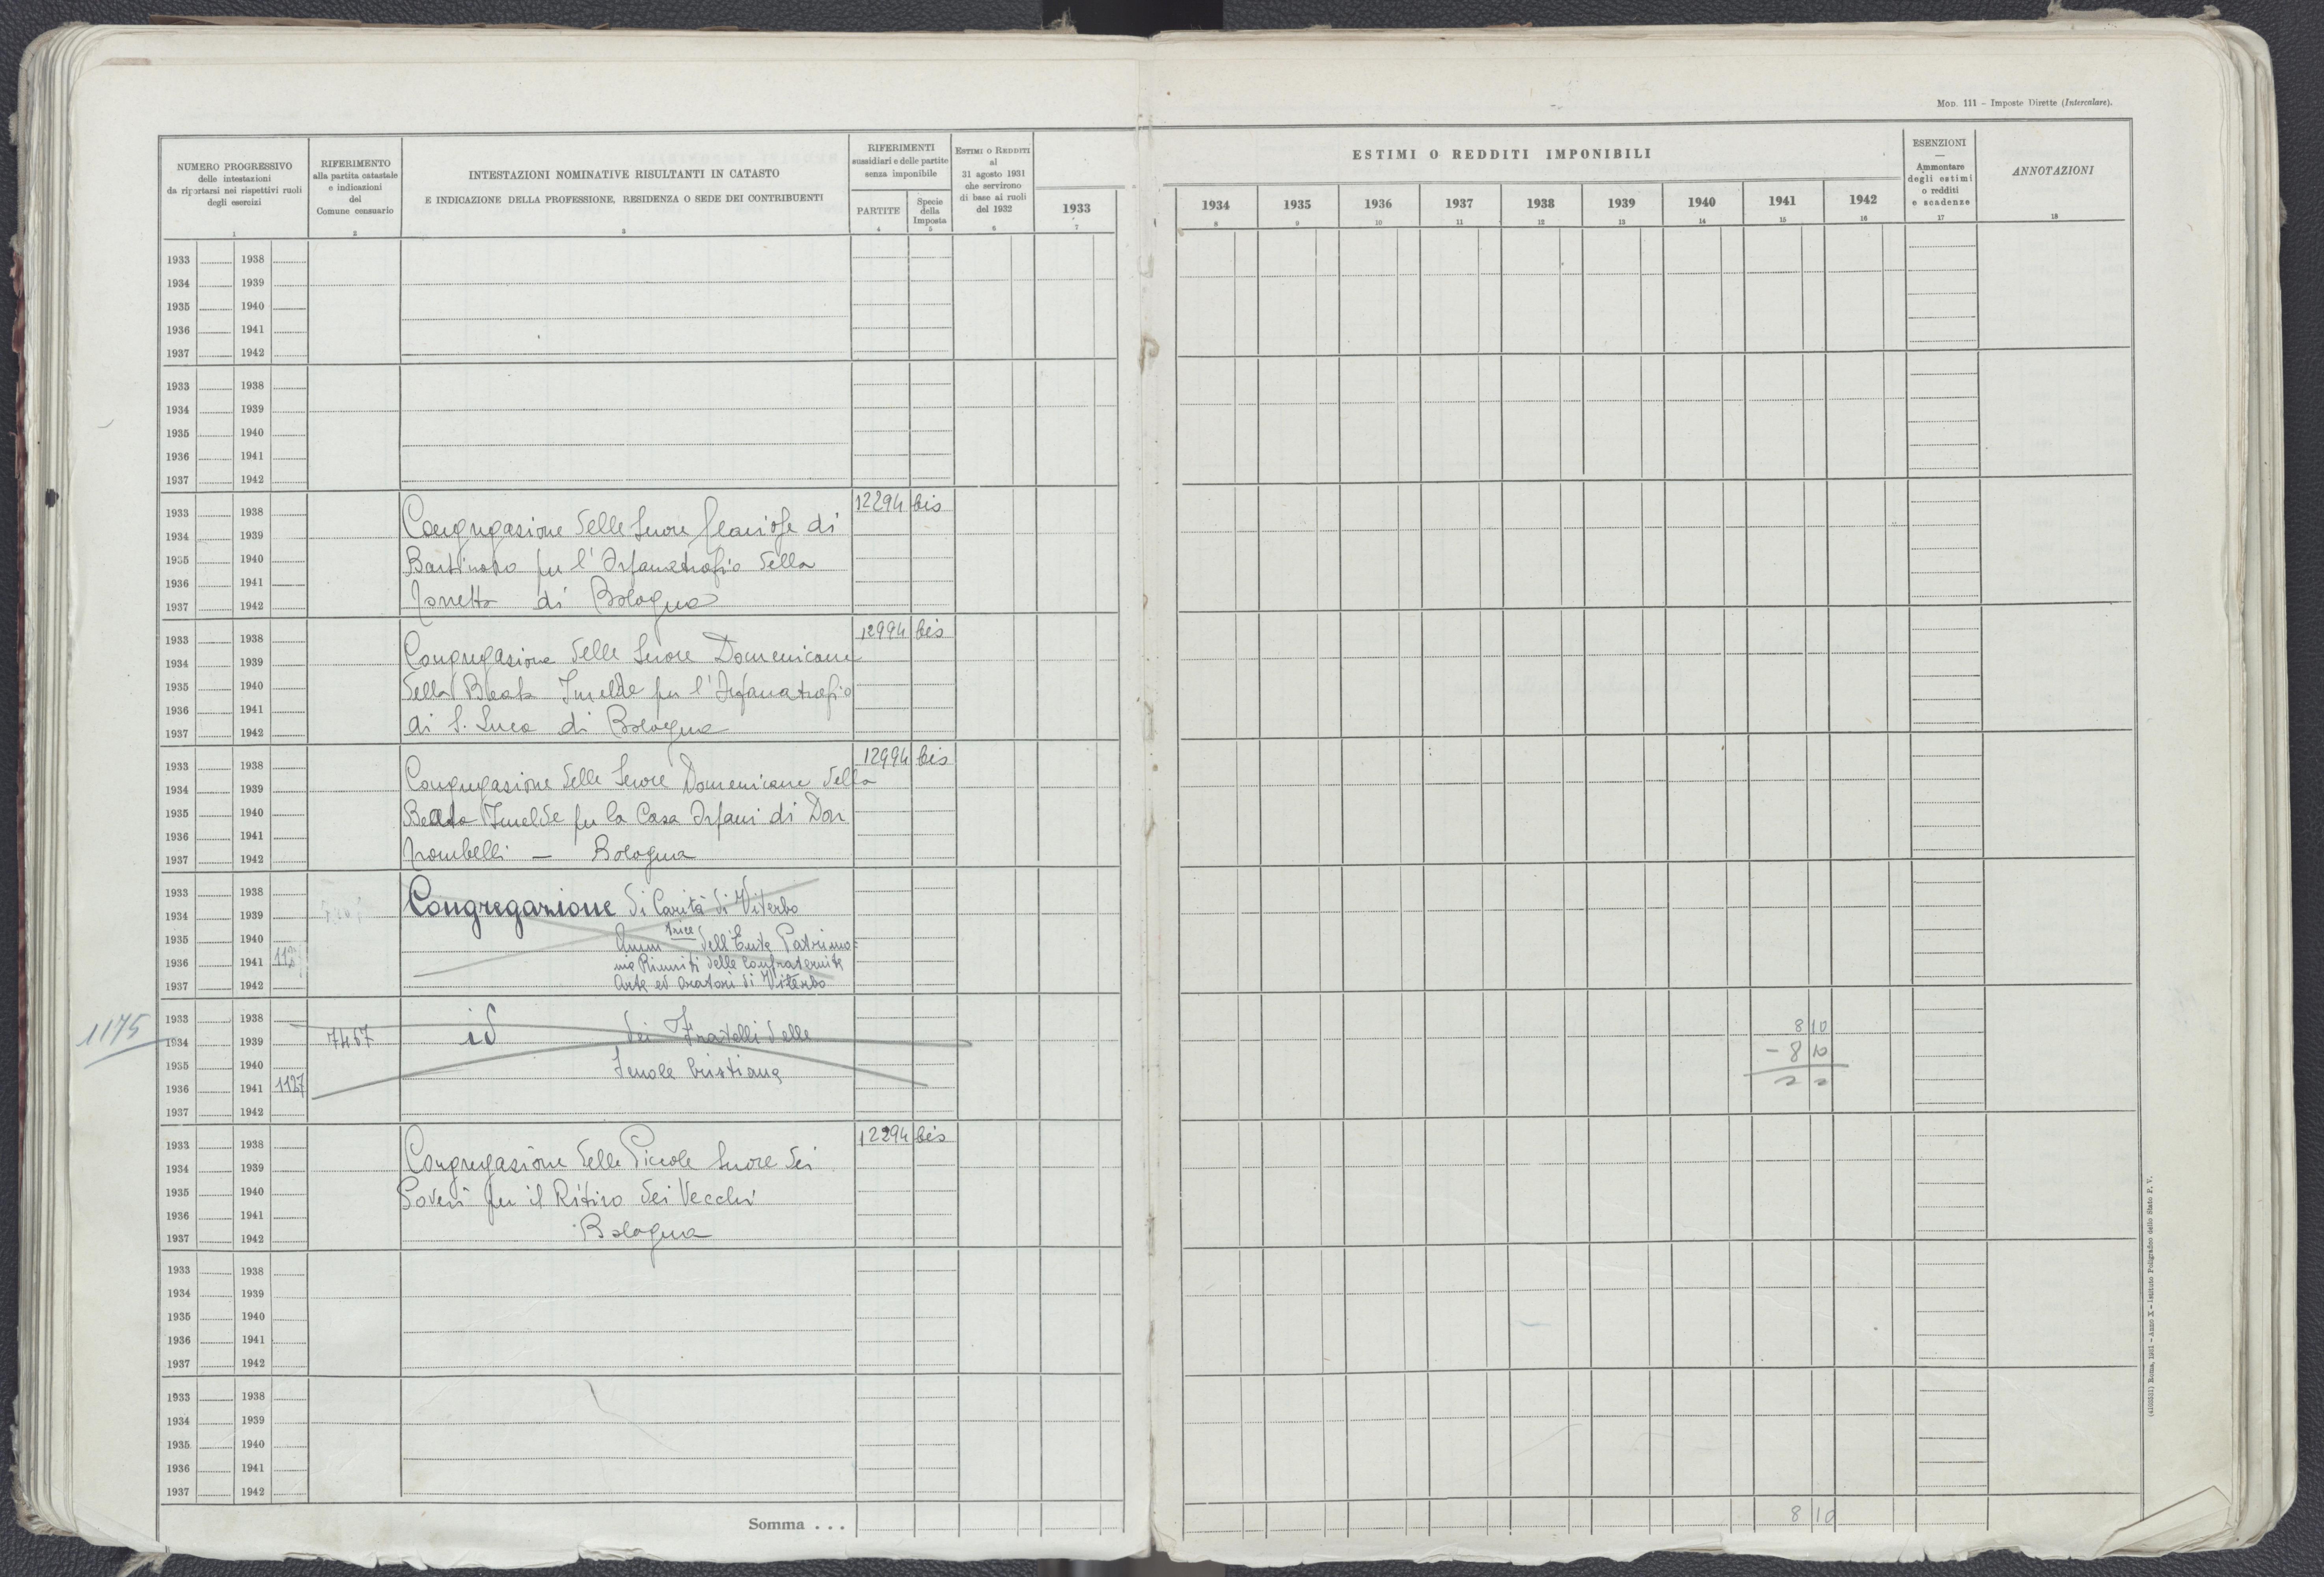 Mod. 111 – Imposte Dirette (Intercalare).
NUMERO PROGRESSIVO
delle intestazioni
da riportarsi nei rispettivi ruoli
degli esercizi
1
RIFERIMENTO
alla partita catastale
e indicazioni
del
Comune censuario
2
INTESTAZIONI NOMINATIVE RISULTANTI IN CATASTO
E INDICAZIONE DELLA PROFESSIONE, RESIDENZA O SEDE DEI CONTRIBUENTI
3
RIFERIMENTI
sussidiari e delle partite
senza imponibile
PARTITE
4
Specie
della
Imposta
5
Estimi o Redditi
al
31 agosto 1931
che servirono
di base ai ruoli
del 1932
6
1933
7
ESTIMI O REDDITI IMPONIBILI
1934 1935 1936 1937 1938 1939 1940 1941 1942
8 9 10 11 12 13 14 15 16
ESENZIONI
—
Ammontare
degli estimi
o redditi
e scadenze
17
ANNOTAZIONI
18
1933 1938
1934 1939
1935 1940
1936 1941
1937 1942
1933 1938
1934 1939
1935 1940
1936 1941
1937 1942
1933 1938 12294 bis
1934 1939 Congregazione delle Suore di
1935 1940 per l'Orfanatrofio della
1936 1941
1937 1942 di Bologna
1933 1938 12994 bis
1934 1939 Congregazione delle Suore Domenicane
1935 1940 della Beata Imelde per l'Orfanatrofio
1936 1941
1937 1942 di S. Luca di Bologna
1933 1938 12994 bis
1934 1939 Congregazione delle Suore Domenicane della
1935 1940 Beata Imelde per la Casa Orfani di Don
1936 1941
1937 1942 Trombelli — Bologna
1933 1938
1934 1939 Congregazione di Carità di Viterbo
1935 1940 Amm trice dell'Ente Patrimo=
1936 1941 112 nio Riuniti delle Confraternite
1937 1942 Arte ed Oratori di Viterbo
1933 1938 8 10
1175 1934 1939 7467 id dei Fratelli delle
1935 1940 Scuole Cristiane - 8 10
1936 1941 1127
1937 1942
1933 1938 12294 bis
1934 1939 Congregazione delle Piccole Suore dei
1935 1940 Poveri per il Ritiro dei Vecchi
1936 1941
1937 1942 Bologna
1933 1938
1934 1939
1935 1940
1936 1941
1937 1942
1933 1938
1934 1939
1935 1940
1936 1941
1937 1942
Somma . . . 8 10
(4103531) Roma, 1931 – Anno X – Istituto Poligrafico dello Stato P. V.